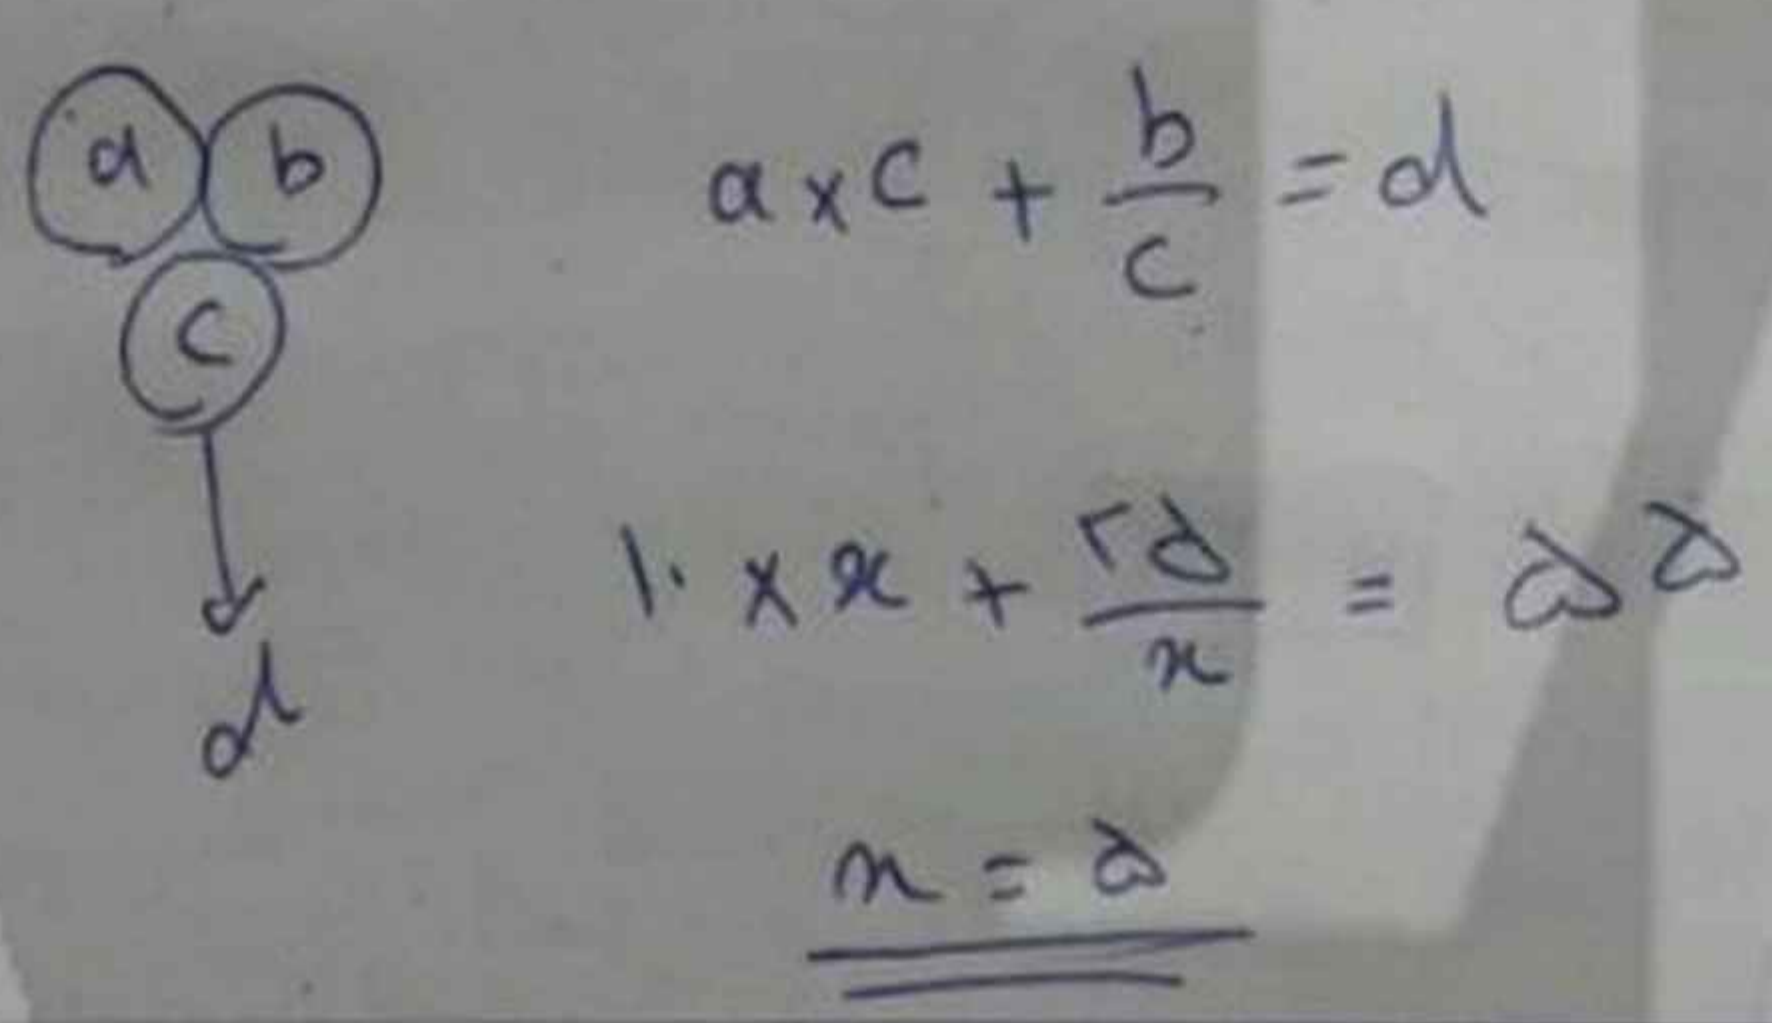 a b
c
d
a × c + b/c = d
۱۰ × x + ۲۵/x = ۵۵
x = ۵